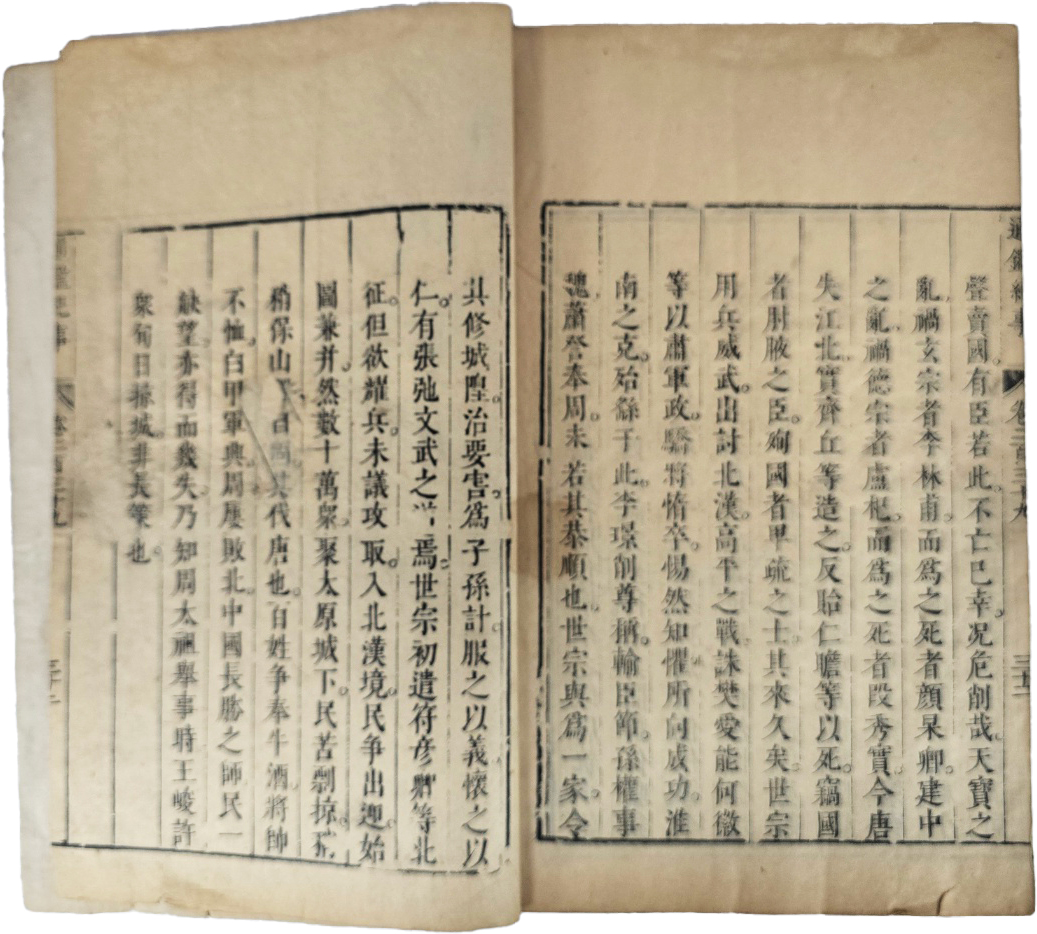 聲賣國。有臣若此。不亡已幸。况危削哉。天寶之
亂。禍玄宗者李林甫。而爲之死者顔杲卿。建中
之亂。禍德宗者盧杞。而爲之死者段秀實。今唐
失江北。實齊丘等造之。反貽仁瞻等以死。竊國
者肘腋之臣。殉國者卑疏之士。其來久矣。世宗
用兵威武。出討北漢。高平之戰。誅樊愛能何徽
等以肅軍政。驕將惰卒。惕然知懼。所向成功。淮
南之克。殆繇于此。李璟削尊稱。輸臣節。孫權事
魏。蕭詧奉周。未若其恭順也。世宗與爲一家。令
其修城隍。治要害。爲子孫計。服之以義。懷之以
仁。有張弛文武之 焉。世宗初遣符彦卿等北
征。但欲耀兵。未議攻取。入北漢境。民争出迎。始
圖兼并。然數十萬衆。聚太原城下。民苦剽掠。
稍保山 代唐也。百姓争奉牛酒。將帥
不恤。白甲軍興。周屡敗北。中國長勝之師。民一
缺望。亦得而幾失。乃知周太祖舉事時。王峻許
衆旬日掠城。非長策也。
通鑑紀事
卷二百三十九